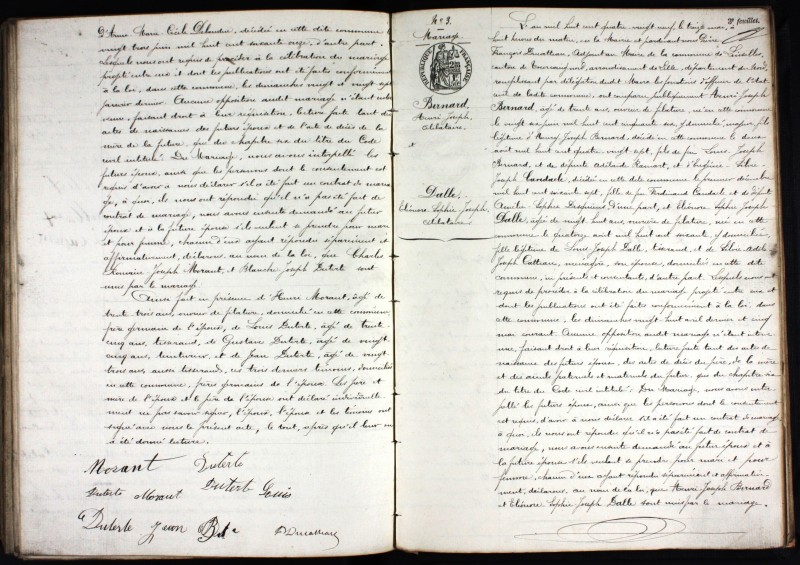 d'Anne Marie Cécile Delandre, décédée en cette dite commune le
vingt trois juin mil huit cent soixante onze, d'autre part.
Lesquels nous ont requis de procéder à la célébration du mariage
projeté entre eux et dont les publications ont été faites conformément
à la loi, dans cette commune, les dimanches vingt et vingt sept
janvier dernier. Aucune opposition audit mariage n'étant inter
venue, faisant droit à leur réquisition, lecture faite tant des
actes de naissances des futurs époux et de l'acte de décès de la
mère de la future, que du chapitre six du titre du Code
civil intitulé Du Mariage, nous avons interpellé les
futurs époux, ainsi que les personnes dont le consentement est
requis d'avoir à nous déclarer s'il a été fait un contrat de maria
ge, à quoi, ils nous ont répondu qu'il n'a pas été fait de
contrat de mariage, nous avons ensuite demandé au futur
époux et à la future épouse s'ils veulent se prendre pour mari
et pour femme, chacun d'eux ayant répondu séparément et
affirmativement, déclarons, au nom de la loi, que Charles
Romain Joseph Morant, et Blanche Joseph Duterte sont
unis par le mariage.
Ainsi fait en présence d'Henri Morant, âgé de
trente trois ans, domicilié en cette commune,
frère germain de l'époux, de Louis Duterte, âgé de trente
cinq ans, tisserand, de Gustave Duterte, âgé de vingt
cinq ans, et de Jean Duterte, âgé de vingt
trois ans, aussi tisserand, ces trois derniers témoins, domiciliés
en cette commune, frères germains de l'épouse. Les père et
mère de l'époux et le père de l'épouse ont déclaré individuelle
ment ne pas savoir signer, l'époux, l'épouse et les témoins ont
signé avec nous le présent acte, le tout, après qu'il leur en
a été donné lecture.
Morant Duterte
Duterte Morant Duterte Louis
Duterte Jean
D. Ducatteau
N° 3.
Mariage
RÉPUBLIQUE FRANÇAISE
Bernard,
Henri Joseph,
célibataire,
x
Dalle,
Eléonore, Sophie, Joseph,
célibataire.
3e feuillet.
L'an mil huit cent quatre vingt neuf, le onze mai, à
huit heures du matin, en la Mairie et pardevant nous
François Ducatteau, Adjoint au Maire de la commune de Linselles,
canton de Tourcoing nord, arrondissement de Lille, département du Nord,
remplissant par délégation dudit Maire les fonctions d'officier de l'Etat
civil de ladite commune, ont comparu publiquement Henri Joseph
Bernard, âgé de trente ans, né en cette commune
le vingt six juin mil huit cent cinquante six, y domicilié, majeur, fils
légitime d'Henry Joseph Bernard, décédé en cette commune le deux
août mil huit cent quatre vingt sept, fils de feu Louis Joseph
Bernard, et de défunte Adélaïde Ramart, et d'Eugénie
Joseph Candaele, décédée en cette dite commune le premier décembre
mil huit cent soixante sept, fille de feu Ferdinand Candaele et de défunte
Amélie Sophie d'une part, et Eléonore Sophie Joseph
Dalle, âgée de vingt huit ans, née en cette
commune le quatorze août mil huit cent soixante, y domiciliée,
fille légitime de Louis Joseph Dalle, tisserand, et de
Joseph Catteau, ménagère, son épouse, domiciliés en cette dite
commune, ici présents et consentants, d'autre part. Lesquels nous ont
requis de procéder à la célébration du mariage projeté entre eux et
dont les publications ont été faites conformément à la loi, dans
cette commune, les dimanches vingt huit avril dernier et cinq
mai courant. Aucune opposition audit mariage n'étant interve
nue, faisant droit à leur réquisition, lecture faite tant des actes de
naissance des futurs époux, des actes de décès du père, de la mère
et des aïeuls paternels et maternels du futur, que du chapitre six
du titre du Code civil intitulé Du Mariage, nous avons inter
pellé les futurs époux, ainsi que les personnes dont le consentement
est requis, d'avoir à nous déclarer s'il a été fait un contrat de mariage
à quoi, ils nous ont répondu qu'il n'a pas été fait de contrat de
mariage, nous avons ensuite demandé au futur époux et à
la future épouse s'ils veulent se prendre pour mari et pour
femme, chacun d'eux ayant répondu séparément et affirmative
ment, déclarons, au nom de la loi, que Henri Joseph Bernard
et Eléonore Sophie Joseph Dalle sont unis par le mariage.